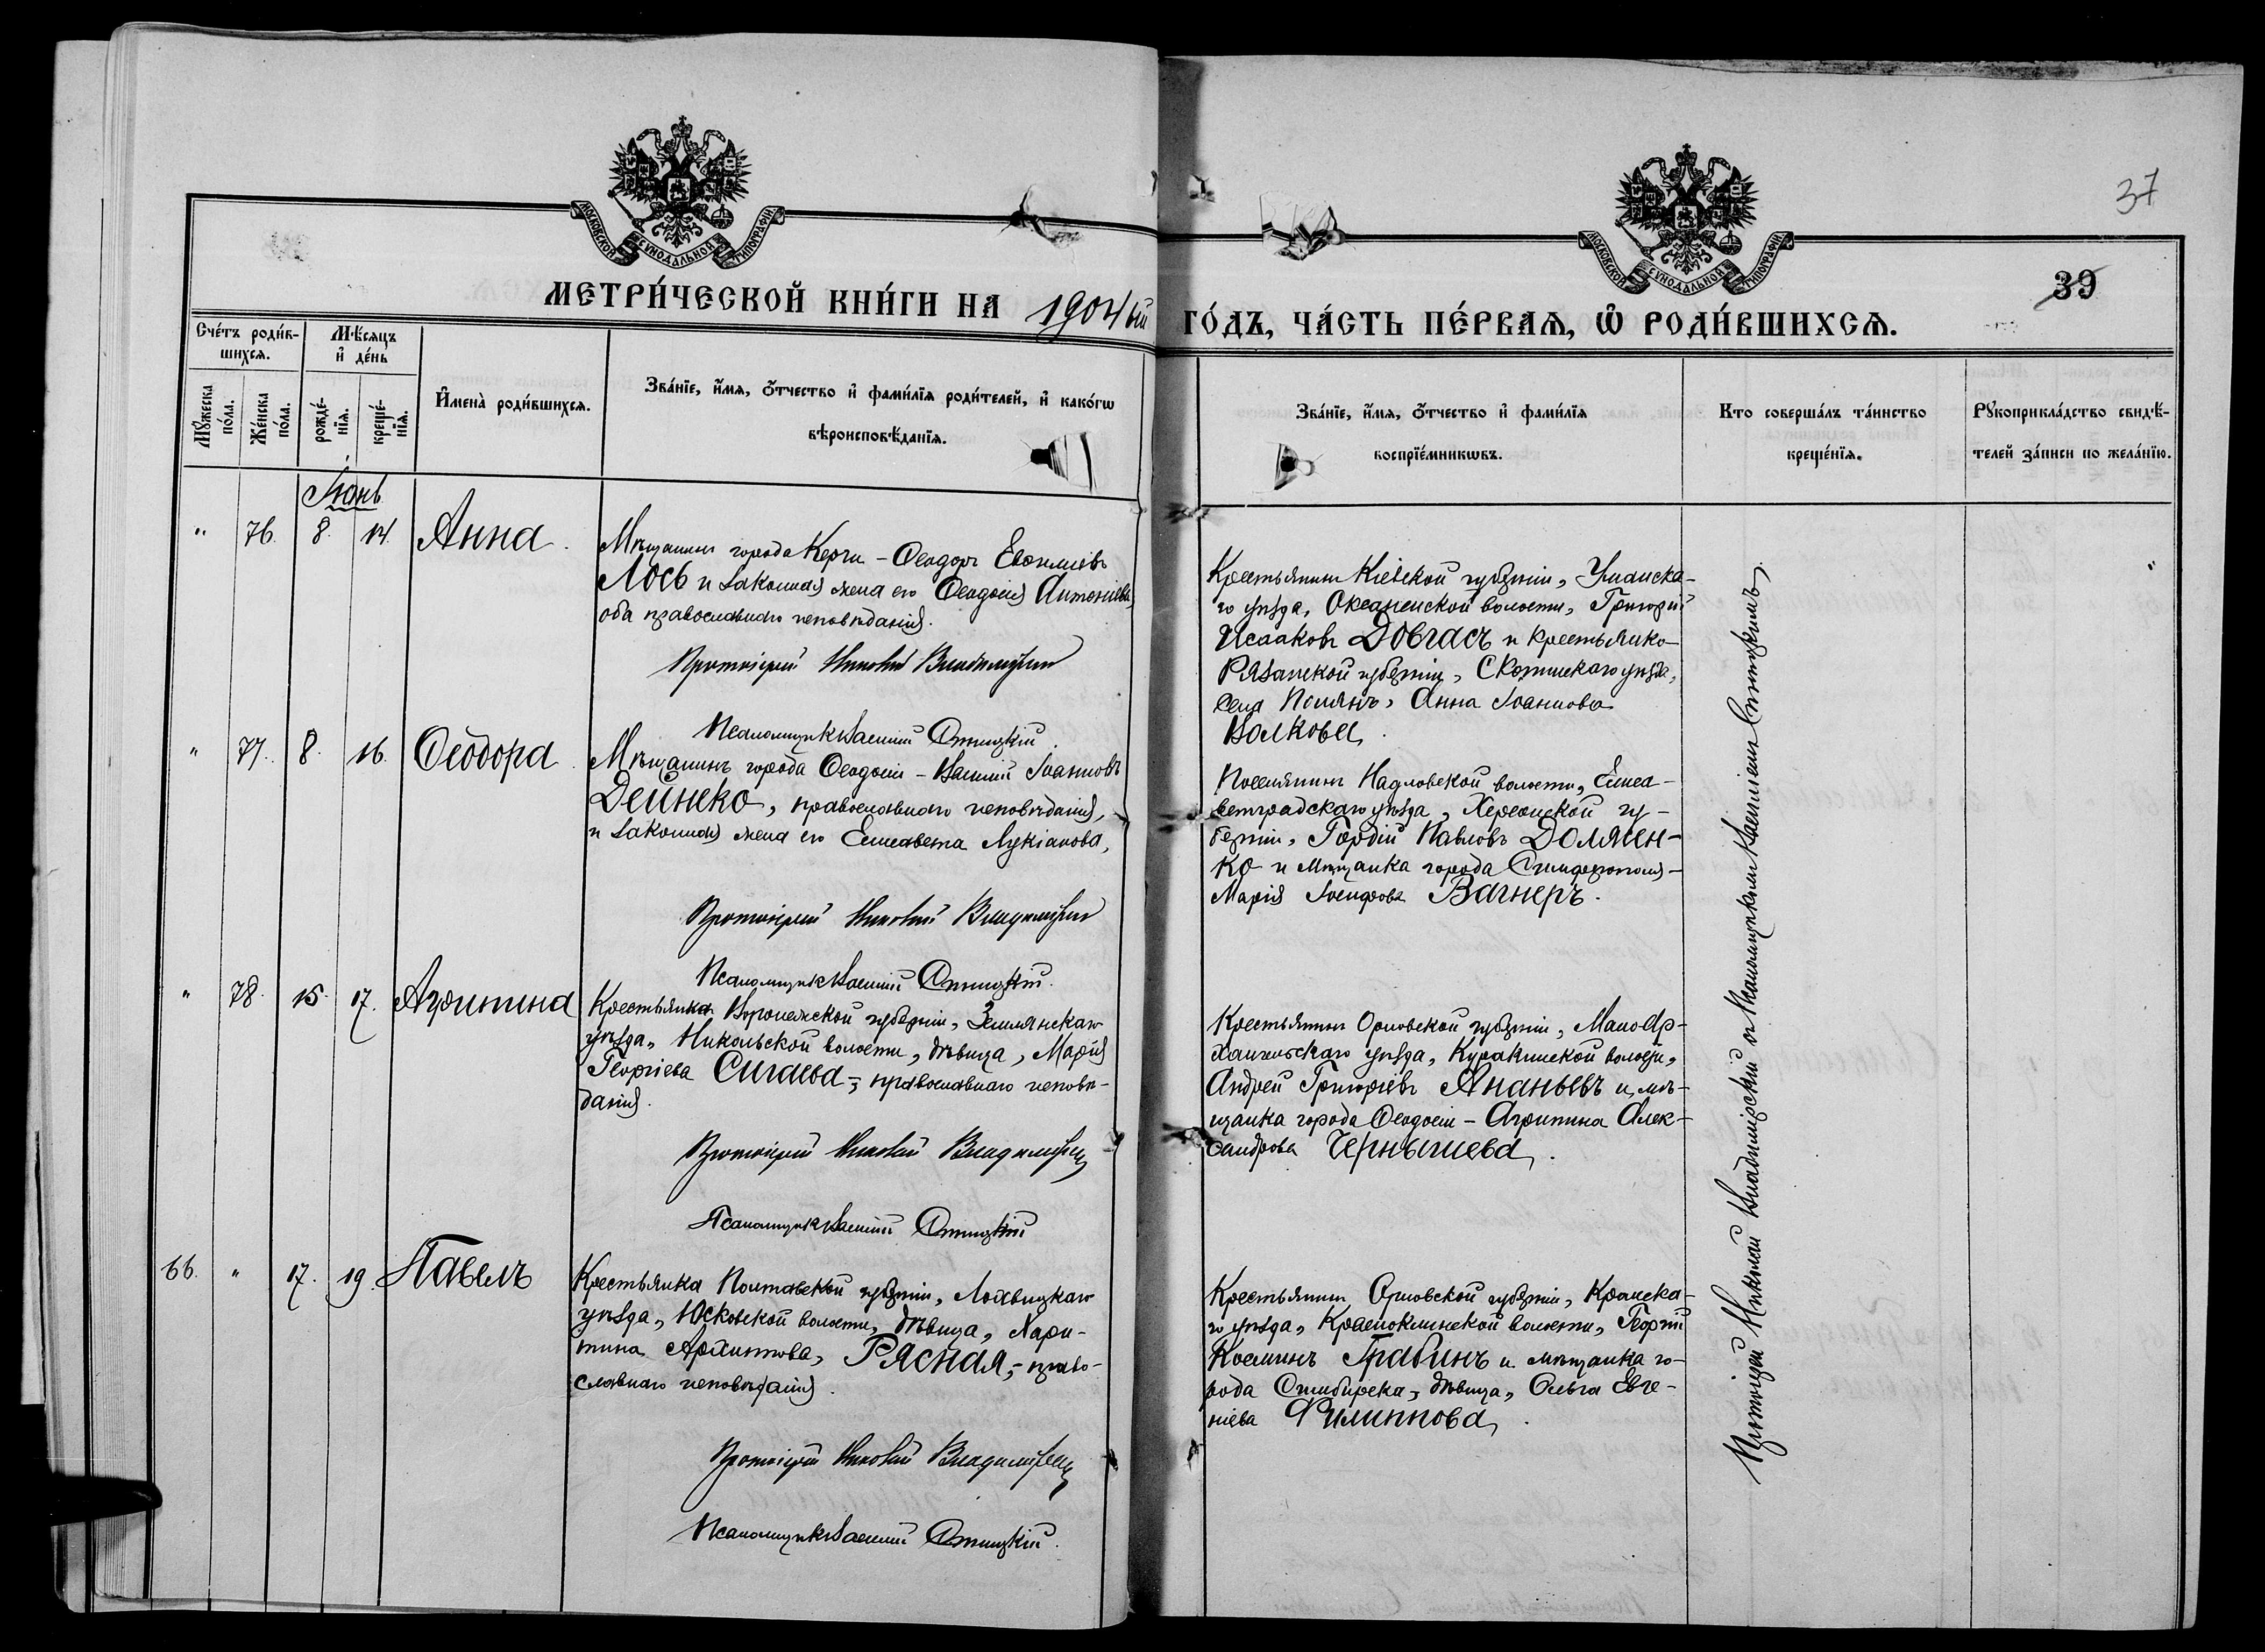 37
39
МОСКОВСКОЙ СѴНОДАЛЬНОЙ ТИПОГРАФІИ
МОСКОВСКОЙ СѴНОДАЛЬНОЙ ТИПОГРАФІИ
МЕТРИ́ЧЕСКОЙ КНИ́ГИ НА 1904 ый ГО́ДЪ, ЧА́СТЬ ПЕ́РВАѦ, Ѡ҆ РОДИ́ВШИХСѦ.
Сче́тъ роди́в-
шихсѧ.
Мѣ́сѧцъ
и҆ де́нь
Мꙋ́жеска
по́ла.
Же́нска
по́ла.
рожде́-
нїѧ.
креще́-
нїѧ.
И҆мена̀ роди́вшихсѧ.
Зва́нїе, и҆́мѧ, ѻ҆́тчество и҆ фами́лїѧ роди́телей, и҆ како́гѡ
вѣроисповѣ́данїѧ.
Зва́нїе, и҆́мѧ, ѻ҆́тчество и҆ фами́лїѧ
воспрїе́мникѡвъ.
Кто соверша́лъ та́инство
креще́нїѧ.
Рꙋкоприкла́дство свидѣ́-
телей за́писи по жела́нїю.
Іюнь
" 76. 8. 14. Анна.
Мѣщанинъ города Керчи - Ѳеодоръ Евѳиміевъ
Лось и законная жена его Ѳеодосія Антоніева,
оба православнаго исповѣданія.
Протоіерей Николай Владимірскій
Псаломщикъ Василій Стицкій.
Крестьянинъ Кіевской губерніи, Уманска-
го уѣзда, Океаненской волости, Григорій
Исааковъ Довгасъ и крестьянка
Рязанской губерніи, Скопинскаго уѣзда,
села Полянъ, Анна Іоаннова
Волкова.
" 77. 8. 16. Ѳеодора.
Мѣщанинъ города Ѳеодосіи - Василій Іоанновъ
Дейнеко, православнаго исповѣданія,
и законная жена его Елисавета Лукіанова,
Протоіерей Николай Владимірскій
Псаломщикъ Василій Стицкій.
Поселянинъ Надловской волости, Елиса-
ветградскаго уѣзда, Херсонской гу-
берніи, Гордій Павловъ Должен-
ко и мѣщанка города Симферополя -
Марія Іосифова Вагнеръ.
" 78. 15. 17. Агрипина
Крестьянка Воронежской губерніи, Землянскаго
уѣзда, Никольской волости, дѣвица, Марія
Георгіева Сигаева, - православнаго исповѣ-
данія.
Протоіерей Николай Владимірскій
Псаломщикъ Василій Стицкій
Крестьянинъ Орловской губерніи, Мало-Ар-
хангельскаго уѣзда, Куракинской волости,
Андрей Григорьевъ Ананьевъ и мѣ-
щанка города Ѳеодосіи - Агрипина Алек-
сандрова Чернышева.
66. " 17. 19. Павелъ
Крестьянка Полтавской губерніи, Лохвицкаго
уѣзда, Юсковской волости, дѣвица, Хари-
тина Архиппова, Рясная, - право-
славнаго исповѣданія.
Протоіерей Николай Владимірскій
Псаломщикъ Василій Стицкій.
Крестьянинъ Орловской губерніи, Кромска-
го уѣзда, Георгій
Косминъ Грабинъ и мѣщанка го-
рода Симбирска, дѣвица, Ольга Евге-
ніева Филиппова.
Протоіерей Николай Владимірскій съ Псаломщикомъ Василіемъ Стицкимъ.